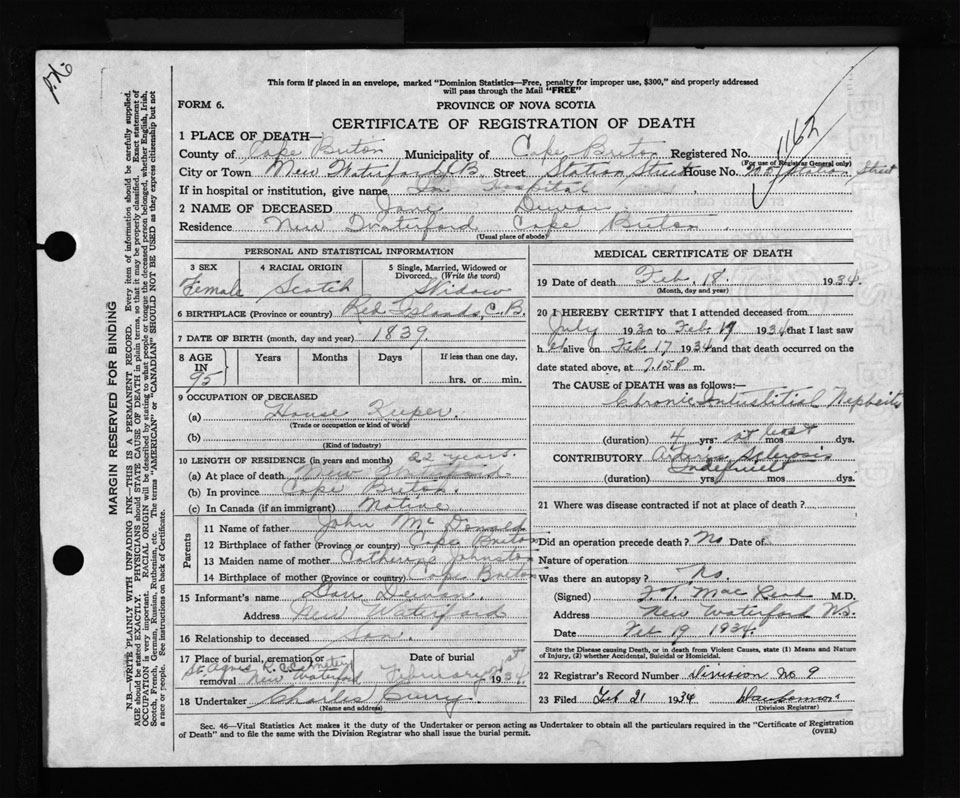 This form if placed in an envelope, marked "Dominion Statistics—Free, penalty for improper use, $300," and properly addressed
will pass through the Mail "FREE"
FORM 6.
PROVINCE OF NOVA SCOTIA
CERTIFICATE OF REGISTRATION OF DEATH
1162
1 PLACE OF DEATH—
County of Cape Breton Municipality of Cape Breton Registered No.
(For use of Registrar General only)
City or Town New Waterford C.B. Street Station Street House No. Station Street
If in hospital or institution, give name Hospital
2 NAME OF DECEASED Jane Dewan
Residence New Waterford Cape Breton
(Usual place of abode)
PERSONAL AND STATISTICAL INFORMATION
3 SEX Female
4 RACIAL ORIGIN Scotch
5 Single, Married, Widowed or Divorced. (Write the word) Widow
6 BIRTHPLACE (Province or country) Red Islands, C.B.
7 DATE OF BIRTH (month, day and year) 1839
8 AGE IN 95 Years Months Days If less than one day, hrs. or min.
9 OCCUPATION OF DECEASED
(a) House Keeper
(Trade or occupation or kind of work)
(b)
(Kind of industry)
10 LENGTH OF RESIDENCE (in years and months) 22 years
(a) At place of death New Waterford
(b) In province Cape Breton
(c) In Canada (if an immigrant) Native
Parents
11 Name of father John McDonald
12 Birthplace of father (Province or country) Cape Breton
13 Maiden name of mother Catherine Johnston
14 Birthplace of mother (Province or country) Cape Breton
15 Informant's name Dan Dewan
Address New Waterford
16 Relationship to deceased Son
17 Place of burial, cremation or removal St. Agnes R.C. Cemetery New Waterford
Date of burial February 21st 1934
18 Undertaker Charles Curry
(Name and address)
MEDICAL CERTIFICATE OF DEATH
19 Date of death Feb. 18. 1934.
(Month, day and year)
20 I HEREBY CERTIFY that I attended deceased from
July 1930 to Feb 19 1934 that I last saw
h er alive on Feb 17 1934 and that death occurred on the
date stated above, at 7.15 P m.
The CAUSE of DEATH was as follows:—
Chronic Interstitial Nephritis
(duration) 4 yrs. at least mos. dys.
CONTRIBUTORY Arterio Sclerosis
Indefinite
(duration) yrs. mos. dys.
21 Where was disease contracted if not at place of death?
Did an operation precede death? No Date of
Nature of operation
Was there an autopsy? No.
(Signed) M.D.
Address New Waterford N.S.
Date Feb 19 1934.
State the Disease causing Death, or in death from Violent Causes, state (1) Means and
Nature of Injury, (2) whether Accidental, Suicidal or Homicidal.
22 Registrar's Record Number Division No 9
23 Filed Feb 21 1934
(Division Registrar)
Sec. 46—Vital Statistics Act makes it the duty of the Undertaker or person acting as Undertaker to obtain all the particulars required in the "Certificate of Registration
of Death" and to file the same with the Division Registrar who shall issue the burial permit.
(OVER)
MARGIN RESERVED FOR BINDING
N.B.—WRITE PLAINLY WITH UNFADING INK—THIS IS A PERMANENT RECORD. Every item of information should be carefully supplied.
AGE should be stated EXACTLY. PHYSICIANS should STATE CAUSE OF DEATH in plain terms, so that it may be properly classified. Exact statement of
OCCUPATION is very important. RACIAL ORIGIN will be described by stating to what people or tongue the deceased person belonged, whether English, Irish,
Scotch, French, German, Russian, Ruthenian, etc. The terms "AMERICAN" or "CANADIAN" SHOULD NOT BE USED as they express citizenship but not
a race or people. See instructions on back of Certificate.